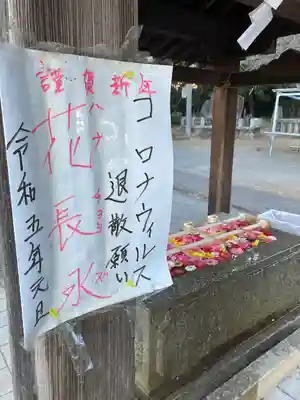 謹賀新年
コロナウィルス
退散願い
花長水
ハナチョウズ
令和五年元旦